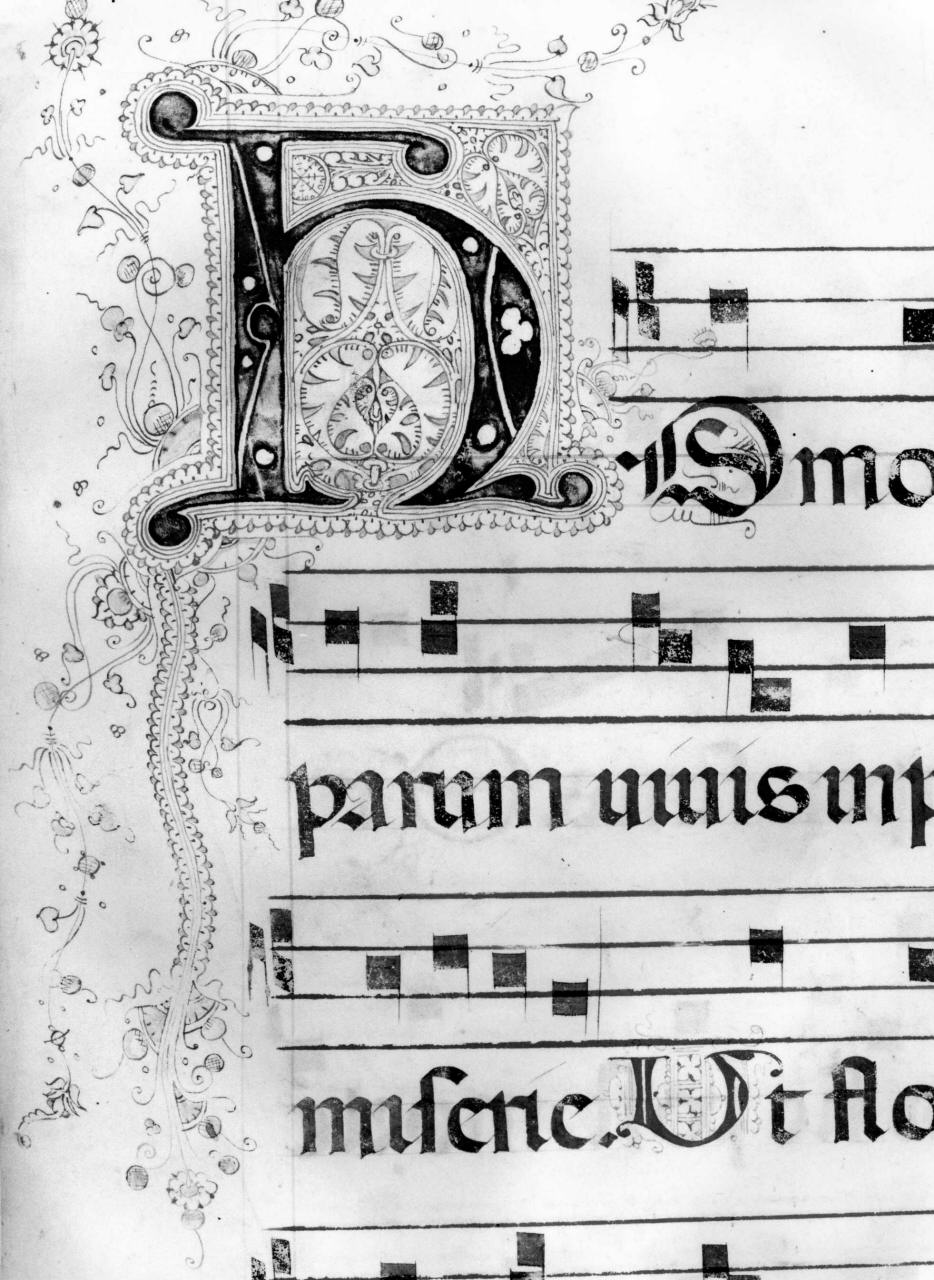 HOmo
parum uiuis inp
miserie. Ut flo